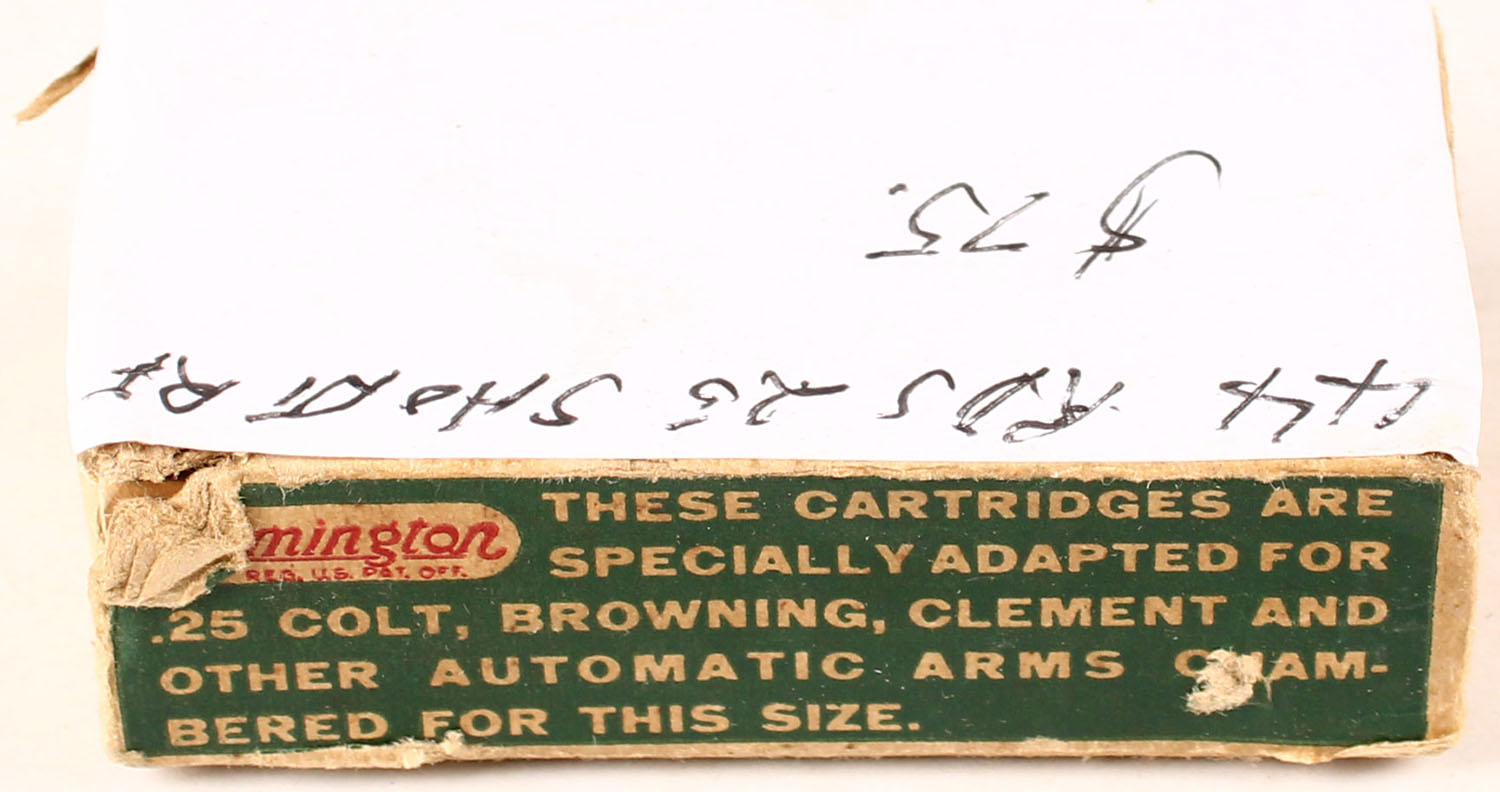 44 RDS 25 SHORT RF
$75.
mington
REG. U.S. PAT. OFF.
THESE CARTRIDGES ARE
SPECIALLY ADAPTED FOR
.25 COLT, BROWNING, CLEMENT AND
OTHER AUTOMATIC ARMS CHAM-
BERED FOR THIS SIZE.